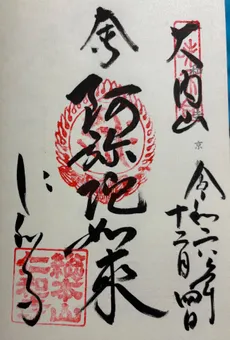 大内山
京
令和六年
十二月四日
奉
阿弥陀如来
仁和寺
総本山
仁和寺